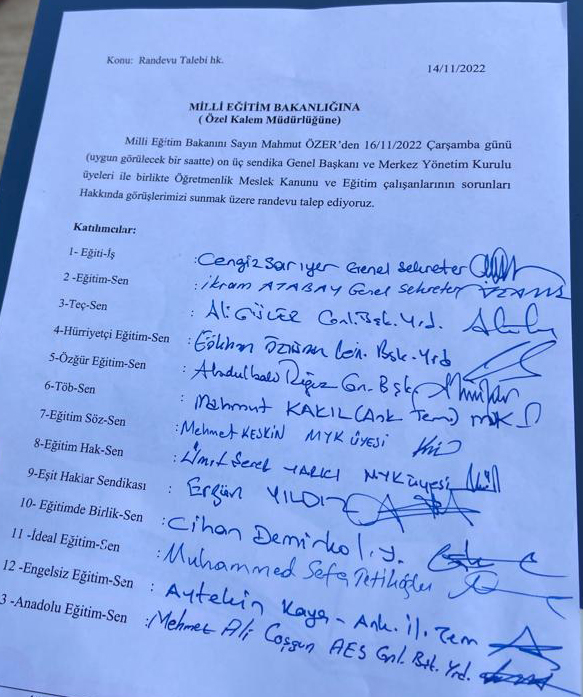 Konu: Randevu Talebi hk.
14/11/2022
MİLLİ EĞİTİM BAKANLIĞINA
( Özel Kalem Müdürlüğüne)
Milli Eğitim Bakanını Sayın Mahmut ÖZER'den 16/11/2022 Çarşamba günü
(uygun görülecek bir saatte) on üç sendika Genel Başkanı ve Merkez Yönetim Kurulu
üyeleri ile birlikte Öğretmenlik Meslek Kanunu ve Eğitim çalışanlarının sorunları
Hakkında görüşlerimizi sunmak üzere randevu talep ediyoruz.
Katılımcılar:
1- Eğiti-İş :Cengiz Sarıyer Genel Sekreter
2 -Eğitim-Sen : İkram ATABAY Genel Sekreter
3-Teç-Sen : Ali GÜLER Gnl.Bşk.Yrd.
4-Hürriyetçi Eğitim-Sen : Gökhan Bşk.Yrd
5-Özgür Eğitim-Sen : Gn. Bşk.
6-Töb-Sen : Mahmut KAKIL (Ank Tem)
7-Eğitim Söz-Sen :Mehmet KESKİN MYK ÜYESİ
8-Eğitim Hak-Sen : Ümit MYK üyesi
9-Eşit Haklar Sendikası : Ergün YILDIZ
10- Eğitimde Birlik-Sen :Cihan Demirkol
11 -İdeal Eğitim-Sen :Muhammed Sefa
12 -Engelsiz Eğitim-Sen : Aytekin Kaya - Ank. il. Tem
3 -Anadolu Eğitim-Sen :Mehmet Ali Coşgun AES Gnl. Bşk. Yrd.